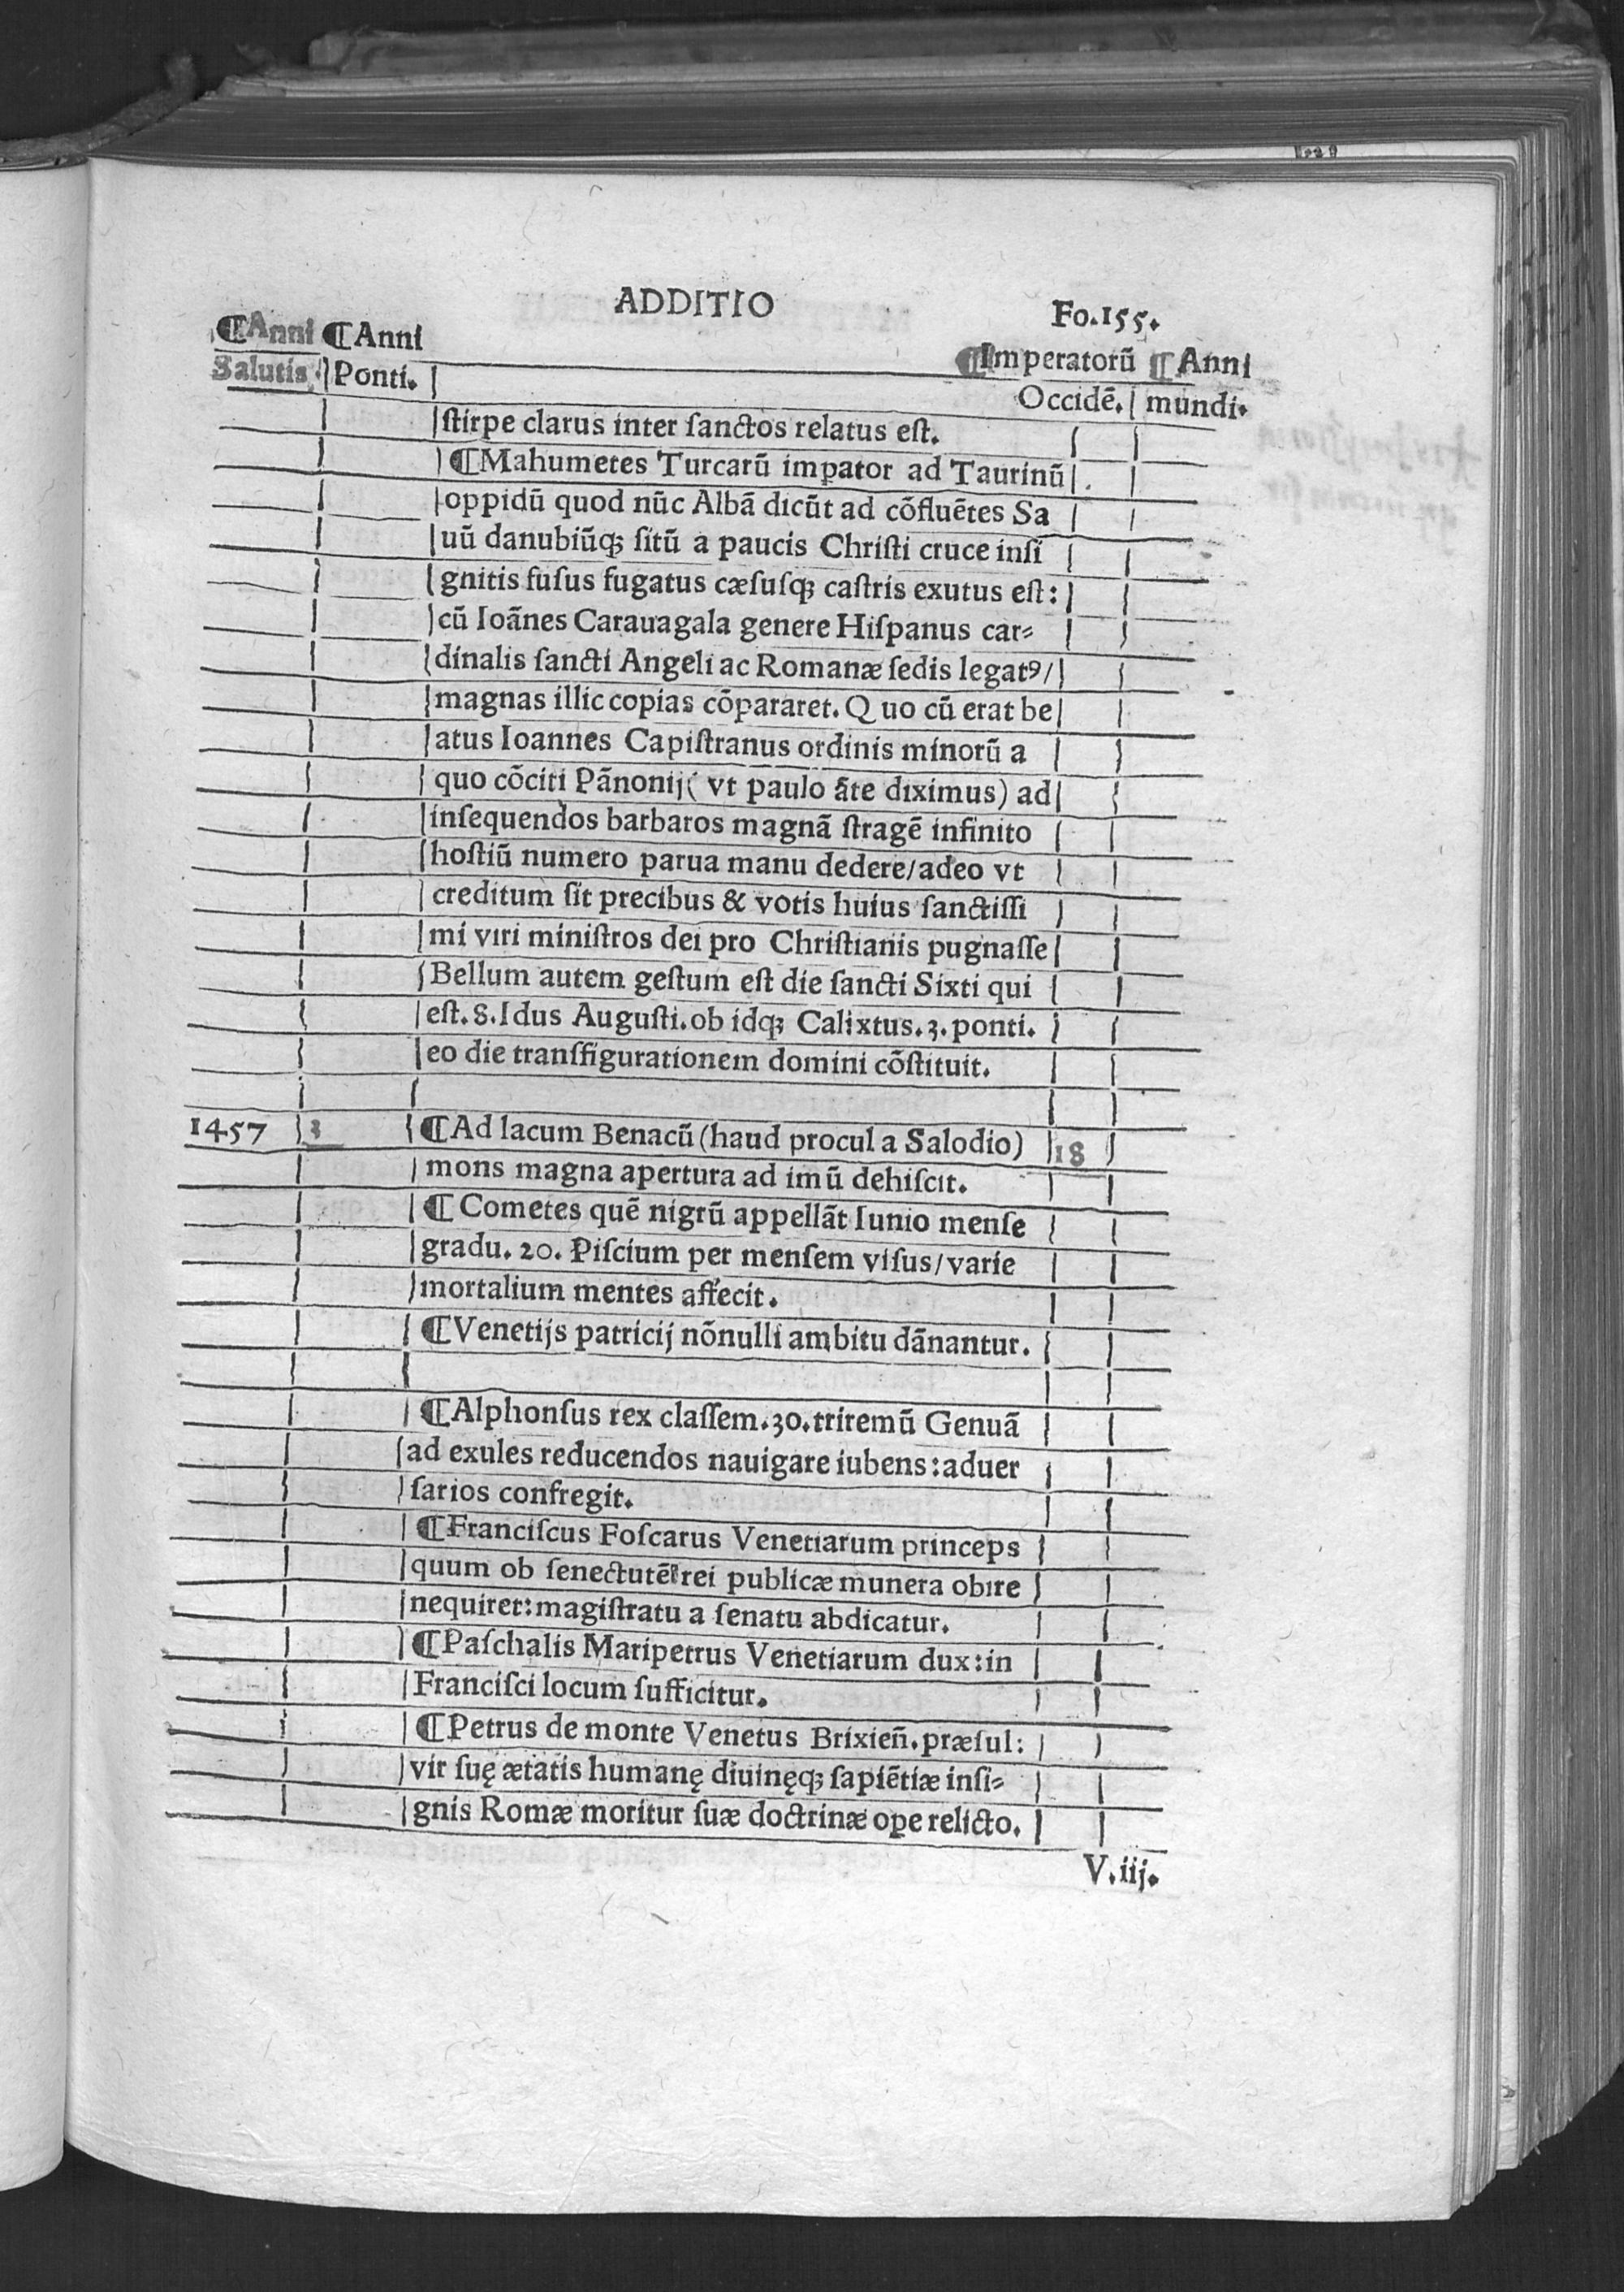 ADDITIO Fo.155.
¶Anni ¶Anni ¶Imperatorũ ¶Anni
Salutis. Ponti. Occidẽ. mundi.
ſtirpe clarus inter ſanctos relatus eſt.
¶Mahumetes Turcarũ imꝑator ad Taurinũ
oppidũ quod nũc Albã dicũt ad cõfluẽtes Sa
uũ danubiũqꝫ ſitũ a paucis Chriſti cruce inſi
gnitis fuſus fugatus cæſuſqꝫ caſtris exutus eſt:
cũ Ioãnes Carauagala genere Hiſpanus car⸗
dinalis ſancti Angeli ac Romanæ ſedis legatꝰ/
magnas illic copias cõpararet. Quo cũ erat be
atus Ioannes Capiſtranus ordinis minorũ a
quo cõciti Pãnonij( vt paulo ãte diximus) ad
inſequendos barbaros magnã ſtragẽ infinito
hoſtiũ numero parua manu dedere/adeo vt
creditum ſit precibus & votis huius ſanctiſſi
mi viri miniſtros dei pro Chriſtianis pugnaſſe
Bellum autem geſtum eſt die ſancti Sixti qui
eſt. 8. Idus Auguſti. ob idqꝫ Calixtus. 3. ponti.
eo die transfigurationem domini cõſtituit.
1457 3 ¶Ad lacum Benacũ (haud procul a Salodio) 18
mons magna apertura ad imũ dehiſcit.
¶Cometes quẽ nigrũ appellãt Iunio menſe
gradu. 20. Piſcium per menſem viſus/varie
mortalium mentes affecit.
¶Venetijs patricij nõnulli ambitu dãnantur.
¶Alphonſus rex claſſem. 30. triremũ Genuã
ad exules reducendos nauigare iubens: aduer
ſarios confregit.
¶Franciſcus Foſcarus Venetiarum princeps
quum ob ſenectutẽ rei publicæ munera obire
nequiret: magiſtratu a ſenatu abdicatur.
¶Paſchalis Maripetrus Venetiarum dux: in
Franciſci locum ſufficitur.
¶Petrus de monte Venetus Brixieñ. præſul:
vir ſuę ætatis humanę diuinęqꝫ ſapiẽtiæ inſi⸗
gnis Romæ moritur ſuæ doctrinæ oꝑe relicto.
V.iij.